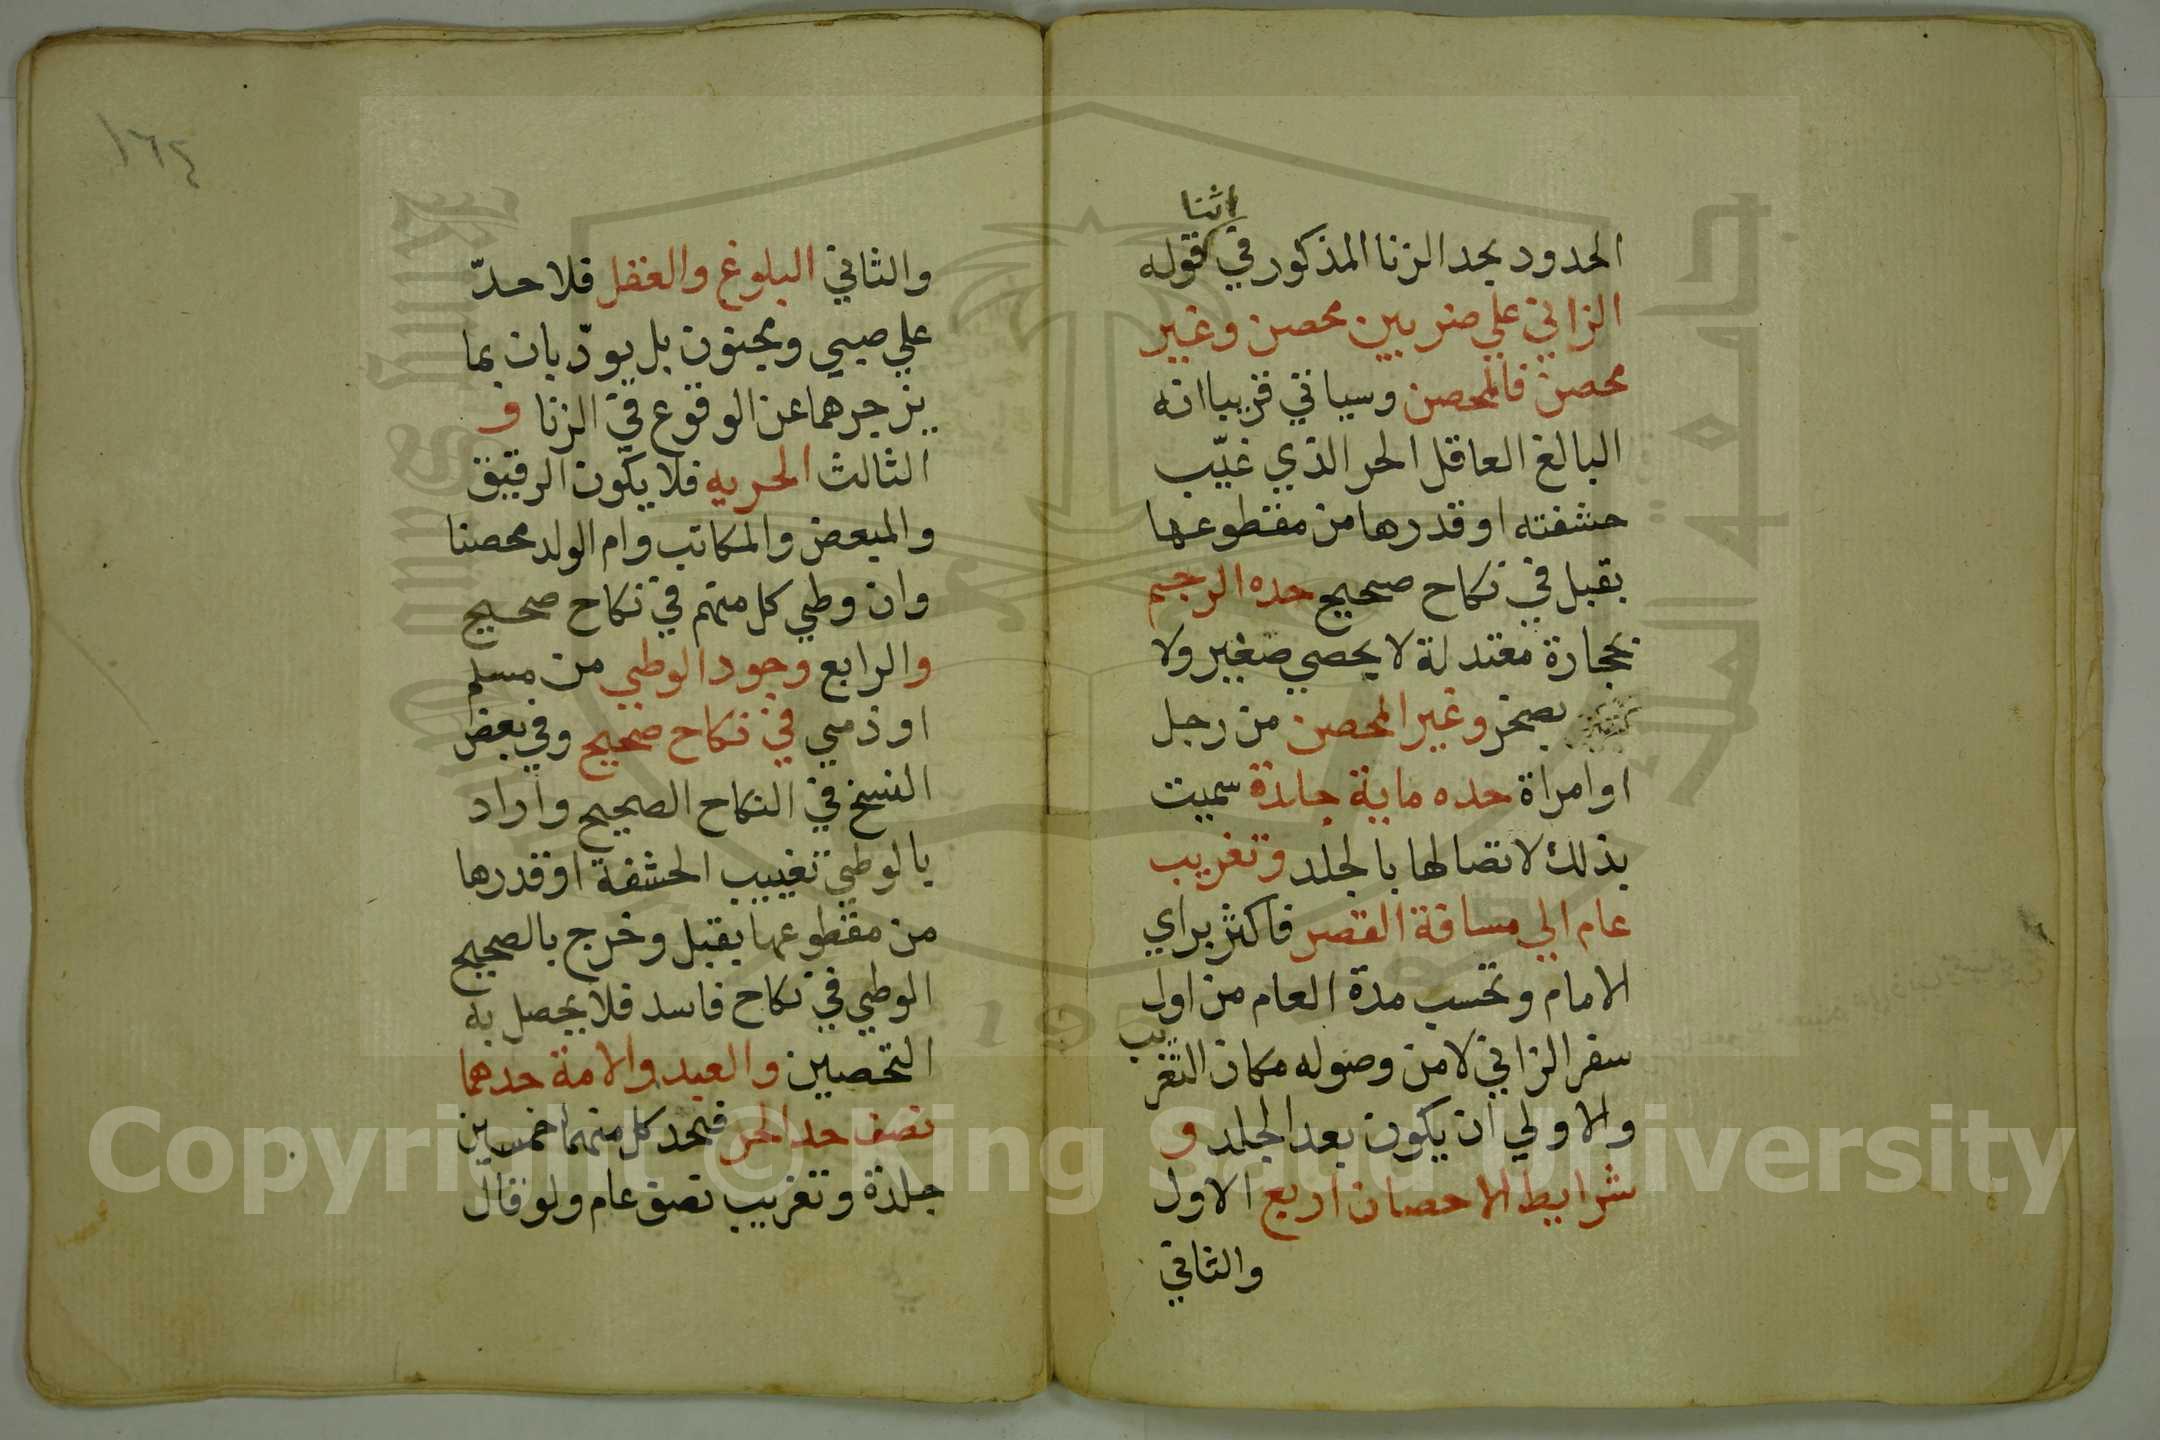 اثنا
الحدود بحد الزنا المذكور في قوله
الزاني علي ضربين محصن وغير
محصن فالمحصن وسياتي قريبا انه
البالغ العاقل الحر الذي غيّب
حشفته او قدرها من مقطوعها
بقبل في نكاح صحيح حده الرجم
بحجارة معتدلة لا بحصي صغير ولا
بصخر وغير المحصن من رجل
او امراة حده ماية جلدة سميت
بذلك لاتصالها بالجلد وتغريب
عام الي مسافة القصر فاكثر براي
الامام وتحسب مدة العام من اول
سفر الزاني لا من وصوله مكان التغريب
والاولي ان يكون بعد الجلد و
شرايط الاحصان اربع الاول
والثاني
١٦٤
والثاني البلوغ والعقل فلا حدّ
علي صبي ومجنون بل يودّبان بما
يزجرهما عن الوقوع في الزنا و
الثالث الحريه فلا يكون الرقيق
والمبعض والمكاتب وام الولد محصنا
وان وطي كل منهم في نكاح صحيح
والرابع وجود الوطي من مسلم
او ذمي في نكاح صحيح وفي بعض
النسخ في النكاح الصحيح واراد
بالوطي تغييب الحشفة او قدرها
من مقطوعها بقبل وخرج بالصحيح
الوطي في نكاح فاسد فلا يحصل به
التحصين والعبد والامة حدهما
نصف حد الحر فيحد كل منهما خمسين
جلدة وتغريب نصف عام ولو قال
Copyright © King Saud University